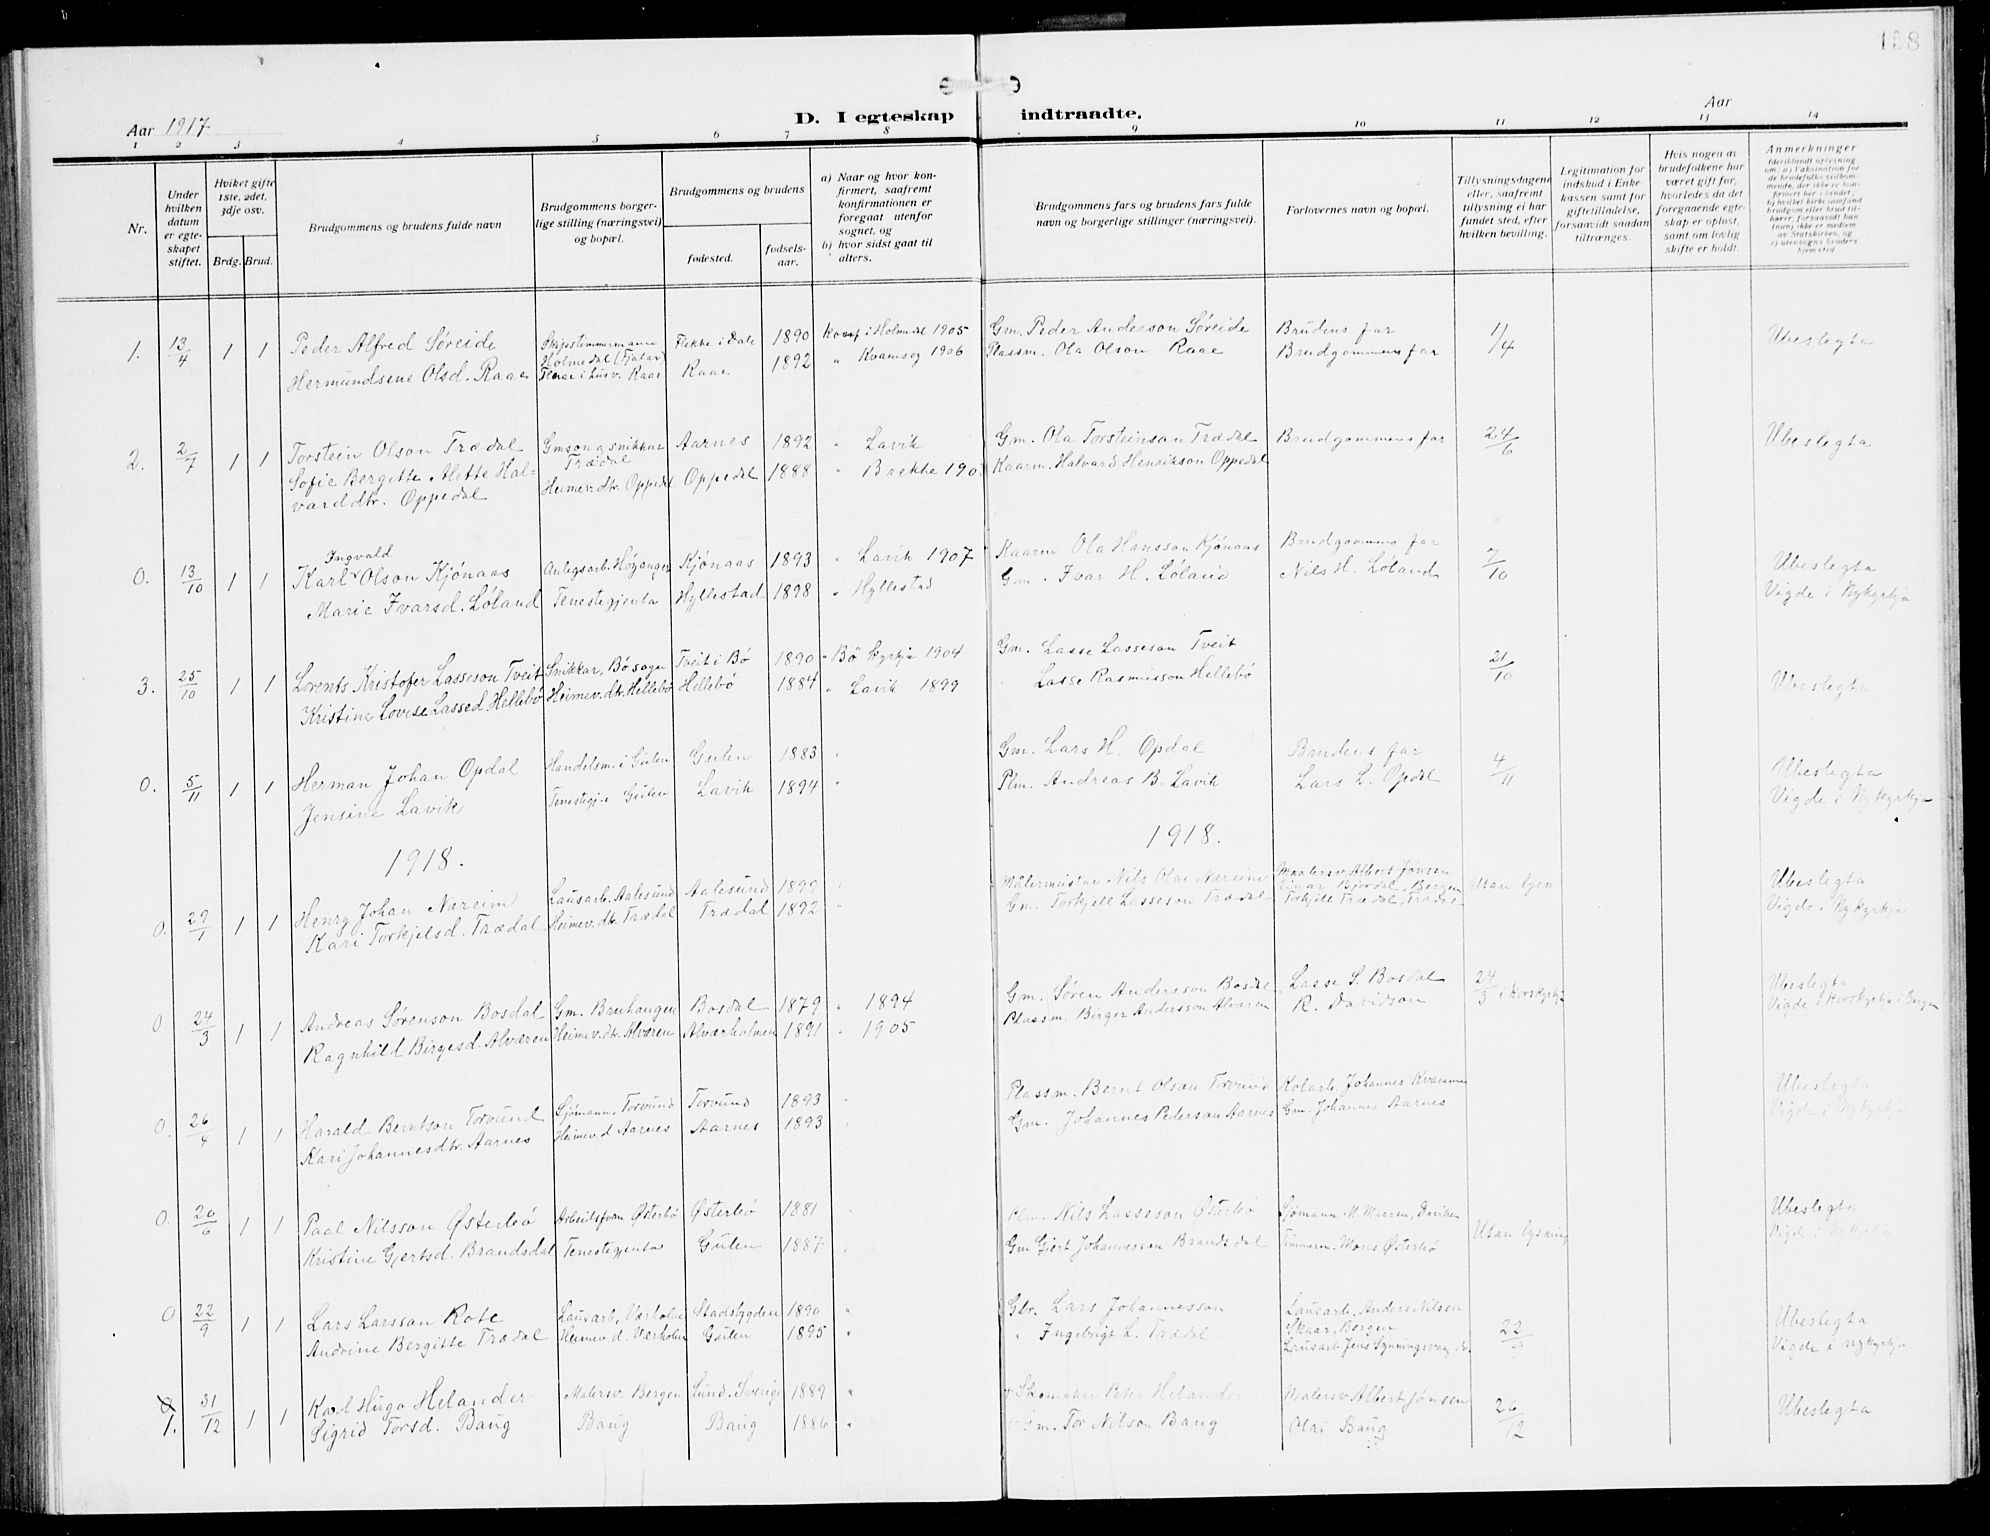 158
Aar 1917
D. I egteskap indtraadte.
Aar
1 2 3 4 5 6 7 8 9 10 11 12 13 14
Nr.
Under hvilken datum er egteskapet stiftet.
Hviket gifte 1ste, 2det, 3dje osv.
Brdg. Brud.
Brudgommens og brudens fulde navn
Brudgommens borgerlige stilling (næringsvei) og bopæl.
Brudgommens og brudens
fødested.
fødselsaar.
a) Naar og hvor konfirmert, saafremt konfirmationen er foregaat utenfor sognet, og
b) hvor sidst gaat til alters.
Brudgommens fars og brudens fars fulde navn og borgerlige stillinger (næringsvei).
Forlovernes navn og bopæl.
Tillysningsdagene eller, saafremt tillysning ei har fundet sted, efter hvilken bevilling.
Legitimation for indskud i Enkekassen samt for giftetilladelse, forsaavidt saadan tiltrænges.
Hvis nogen av brudefolkene har været gift før, hvorledes da det foregaaende egteskap er opløst, samt om lovlig skifte er holdt.
Anmerkninger
1. 13/4 1 1 Peder Alfred Søreide Skipstimmermann Flekke i Dale 1890 Konf i Holmedal 1905 Gm. Peder Anderson Søreide Brudens far 1/4 Ubeslegta
Hermundsene Olsd. Raae Tenar i husv. Raae Raae 1892 " Kvamsøg 1906 Plassm. Ola Olson Raae Brudgommens far
2. 2/7 1 1 Torstein Olson Trædal Gmson og snikkar Trædal Aarnes 1892 " Lavik Gm. Ola Torsteinson Trædal Brudgommens far 24/6 Ubeslegta
Sofie Bergitte Alette Halvarddtr. Oppedal Heimev. dtr. Oppedal Oppedal 1888 " Brekke 190 Kaarm. Halvard Henrikson Oppedal
0. 13/10 1 1 Karl Ingvald Olson Kjönaas Anlegsarb. Høyanger Kjönaas 1893 " Lavik 1907 Kaarm Ola Hansson Kjönaas Brudgommens far 7/10 Ubeslegta
Marie Ivarsd. Løland Tenestegjenta Hyllestad 1898 " Hyllestad Gm. Ivar H. Løland Nils H. Løland Vigde i Nykyrkja
3. 25/10 1 1 Lorents Kristofer Lasseson Tveit Snikkar, Bø sogn Tveit i Bø 1890 " Bø kyrkja 1904 Gm. Lasse Lasseson Tveit 21/10 Ubeslegta
Kristine Lovise Lassed. Hellebø Heimev. dtr. Hellebø Hellebø 1884 " Lavik 1899 Lasse Rasmusson Hellebø
0. 5/11 1 1 Herman Johan Opdal Handelsm. i Gulen Gulen 1883 " Gm. Lars H. Opdal Brudens far 4/11 Ubeslegta
Jensine Lavik Tenestegje Gulen Lavik 1894 " Plm. Andreas B. Lavik Lars L. Opdal Vigde i Nykyrkja
1918. 1918.
0. 29/1 1 1 Henry Johan Næreim Lausarb. Aalesund Aalesund 1899 " Målermeister Nils Olai Næreim Maalersv. Albert Jønsen Einar Bjordal, Bergen Utan lysn Ubeslegta
Kari Torkjelsd. Trædal Heimev. dtr. Trædal Trædal 1892 " Gm. Torkjell Lasseson Trædal Torkjell Trædal, Trædal Vigde i Nykyrkja
0 24/3 1 1 Andreas Sørenson Bosdal Gm. Bruhaugen Bosdal 1879 " 1894 Gm. Søren Andersson Bosdal Lasse S. Bosdal 24/3 i Korskyrkja Ubeslegta
Ragnhild Birgesd. Alværen Heimev. dtr. Alværen Alværholmen 1891 " 1905 Plassm. Birger Andersson Alværen R. Davidson Vigde i Korskyrkja i Bergen
0. 26/4 1 1 Harald Berntson Torvund Sjømann, Torvund Torvund 1893 " Plassm. Bernt Olson Torvund Kolarb. Johannes Kvamme Ubeslegta
Kari Johannesdtr. Aarnes Heimev. d Aarnes Aarnes 1893 " Gm. Johannes Pederson Aarnes Gm. Johannes Aarnes Vigde i Nykyrkja
0. 20/6 1 1 Paal Nilsson Østerbø Arbeidsform Østerbø Østerbø 1881 " Plm. Nils Lasseson Østerbø Sjømann M. Marren, Daviken Utan lysning Ubeslegta
Kristine Gjertsd. Brandsdal Tenestegjenta Gulen 1887 " Gm Gjert Johannesson Brandsdal Timmerm. Mons Østerbø Vigde i Nykyrkja
0 22/9 1 1 Lars Larsson Rote Lausarb, Værholm Stadsbygden 1890 " Gbr. Lars Johannesson Lausarb. Anders Nilsen Skaar, Bergen 22/9 Ubeslegta
Andrine Bergitte Trædal Heimev. d. Værholm Gulen 1895 " " Ingebrigt L. Trædal Lausarb. Jens Vigde i Nykyrkja
1. 31/12 1 1 Karl Hugo Helander Malersv. Bergen Lund. Sverige 1889 " + Skomakar Peter Helander Malersv Albert Jønsen 26/12 Ubeslegta
Sigrid Torsd. Baug Baug Baug 1886 " + Gm. Tor Nilson Baug Olai Baug